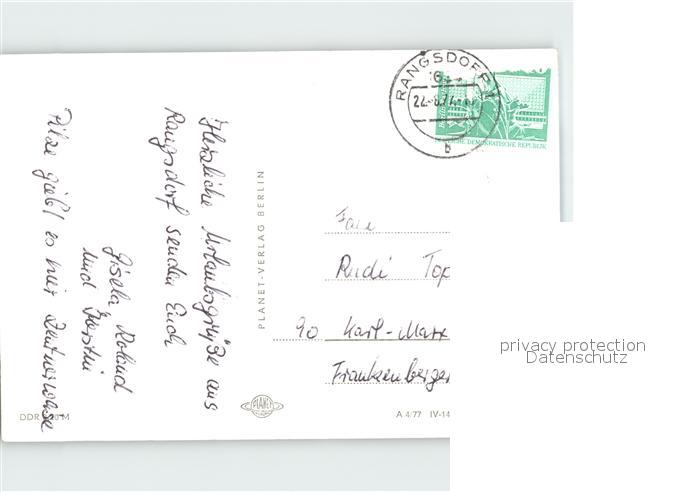 Herzliche Urlaubsgrüße aus
Rangsdorf senden Euch
Gisela, Roland
und Kerstin
Pilze giebt es hier Zentnerweise
PLANET-VERLAG BERLIN
RANGSDORF 1
22.-8.7
b
DEUTSCHE DEMOKRATISCHE REPUBLIK
Fam
Rudi Top
90 Karl-Marx
Frankenberger
DDR M
PLANET
A 4/77 IV-14
privacy protection
Datenschutz